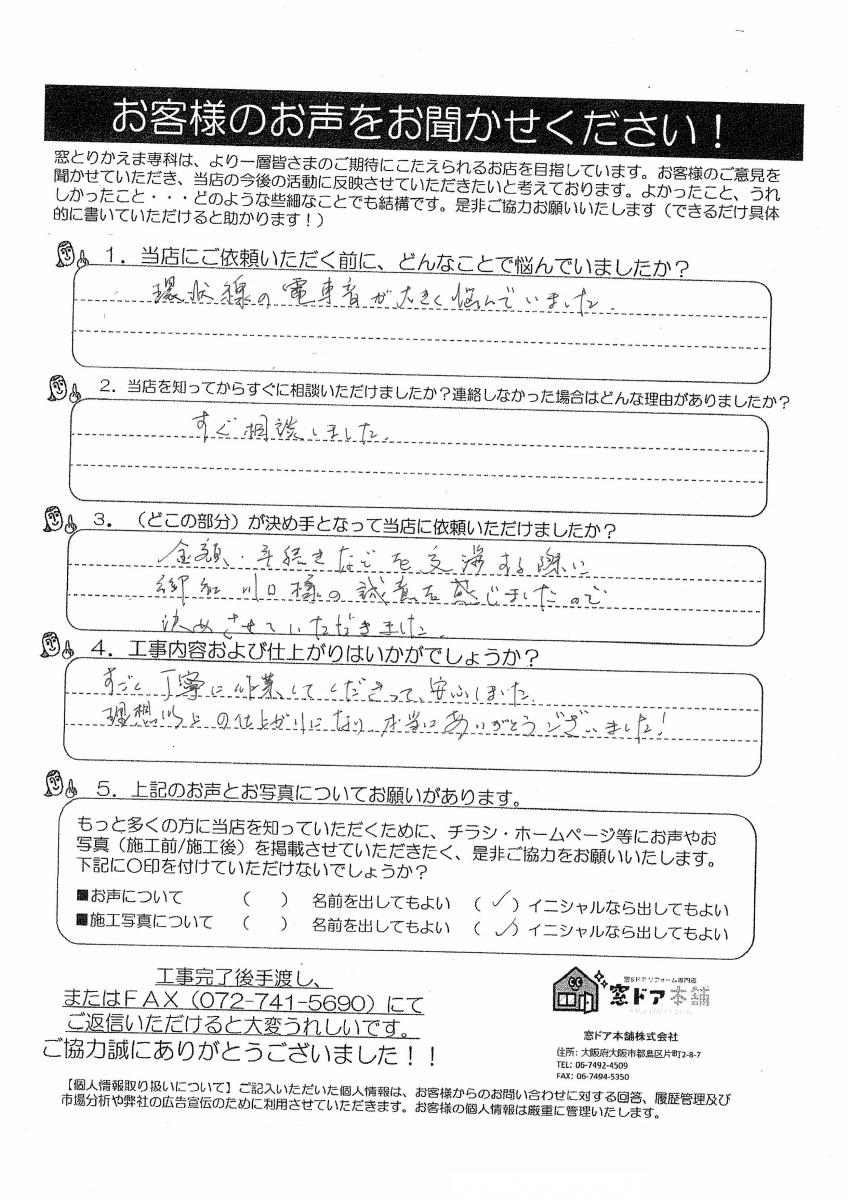 お客様のお声をお聞かせください！
窓とりかえま専科は、より一層皆さまのご期待にこたえられるお店を目指しています。お客様のご意見を
聞かせていただき、当店の今後の活動に反映させていただきたいと考えております。よかったこと、うれ
しかったこと・・・どのような些細なことでも結構です。是非ご協力お願いいたします（できるだけ具体
的に書いていただけると助かります！）
１．当店にご依頼いただく前に、どんなことで悩んでいましたか？
環状線の電車音が大きく悩んでいました.
２．当店を知ってからすぐに相談いただけましたか？連絡しなかった場合はどんな理由がありましたか？
すぐ相談しました.
３．（どこの部分）が決め手となって当店に依頼いただけましたか？
金額・手続きなどを交渉する際に
御社川口様の誠意を感じましたので
決めさせていただきました.
４．工事内容および仕上がりはいかがでしょうか？
すごく丁寧に作業してくださって、安心しました.
理想以上の仕上がりになり 本当にありがとうございました！
５．上記のお声とお写真についてお願いがあります。
もっと多くの方に当店を知っていただくために、チラシ・ホームページ等にお声やお
写真（施工前/施工後）を掲載させていただきたく、是非ご協力をお願いいたします。
下記に〇印を付けていただけないでしょうか？
■お声について （ ） 名前を出してもよい （ ✓ ）イニシャルなら出してもよい
■施工写真について （ ） 名前を出してもよい （ ✓ ）イニシャルなら出してもよい
工事完了後手渡し、
またはＦＡＸ（072-741-5690）にて
ご返信いただけると大変うれしいです。
ご協力誠にありがとうございました！！
窓&ドアリフォーム専門店
窓ドア本舗
窓ドア本舗株式会社
住所: 大阪府大阪市都島区片町2-8-7
TEL: 06-7492-4509
FAX: 06-7494-5350
【個人情報取り扱いについて】ご記入いただいた個人情報は、お客様からのお問い合わせに対する回答、履歴管理及び
市場分析や弊社の広告宣伝のために利用させていただきます。お客様の個人情報は厳重に管理いたします。